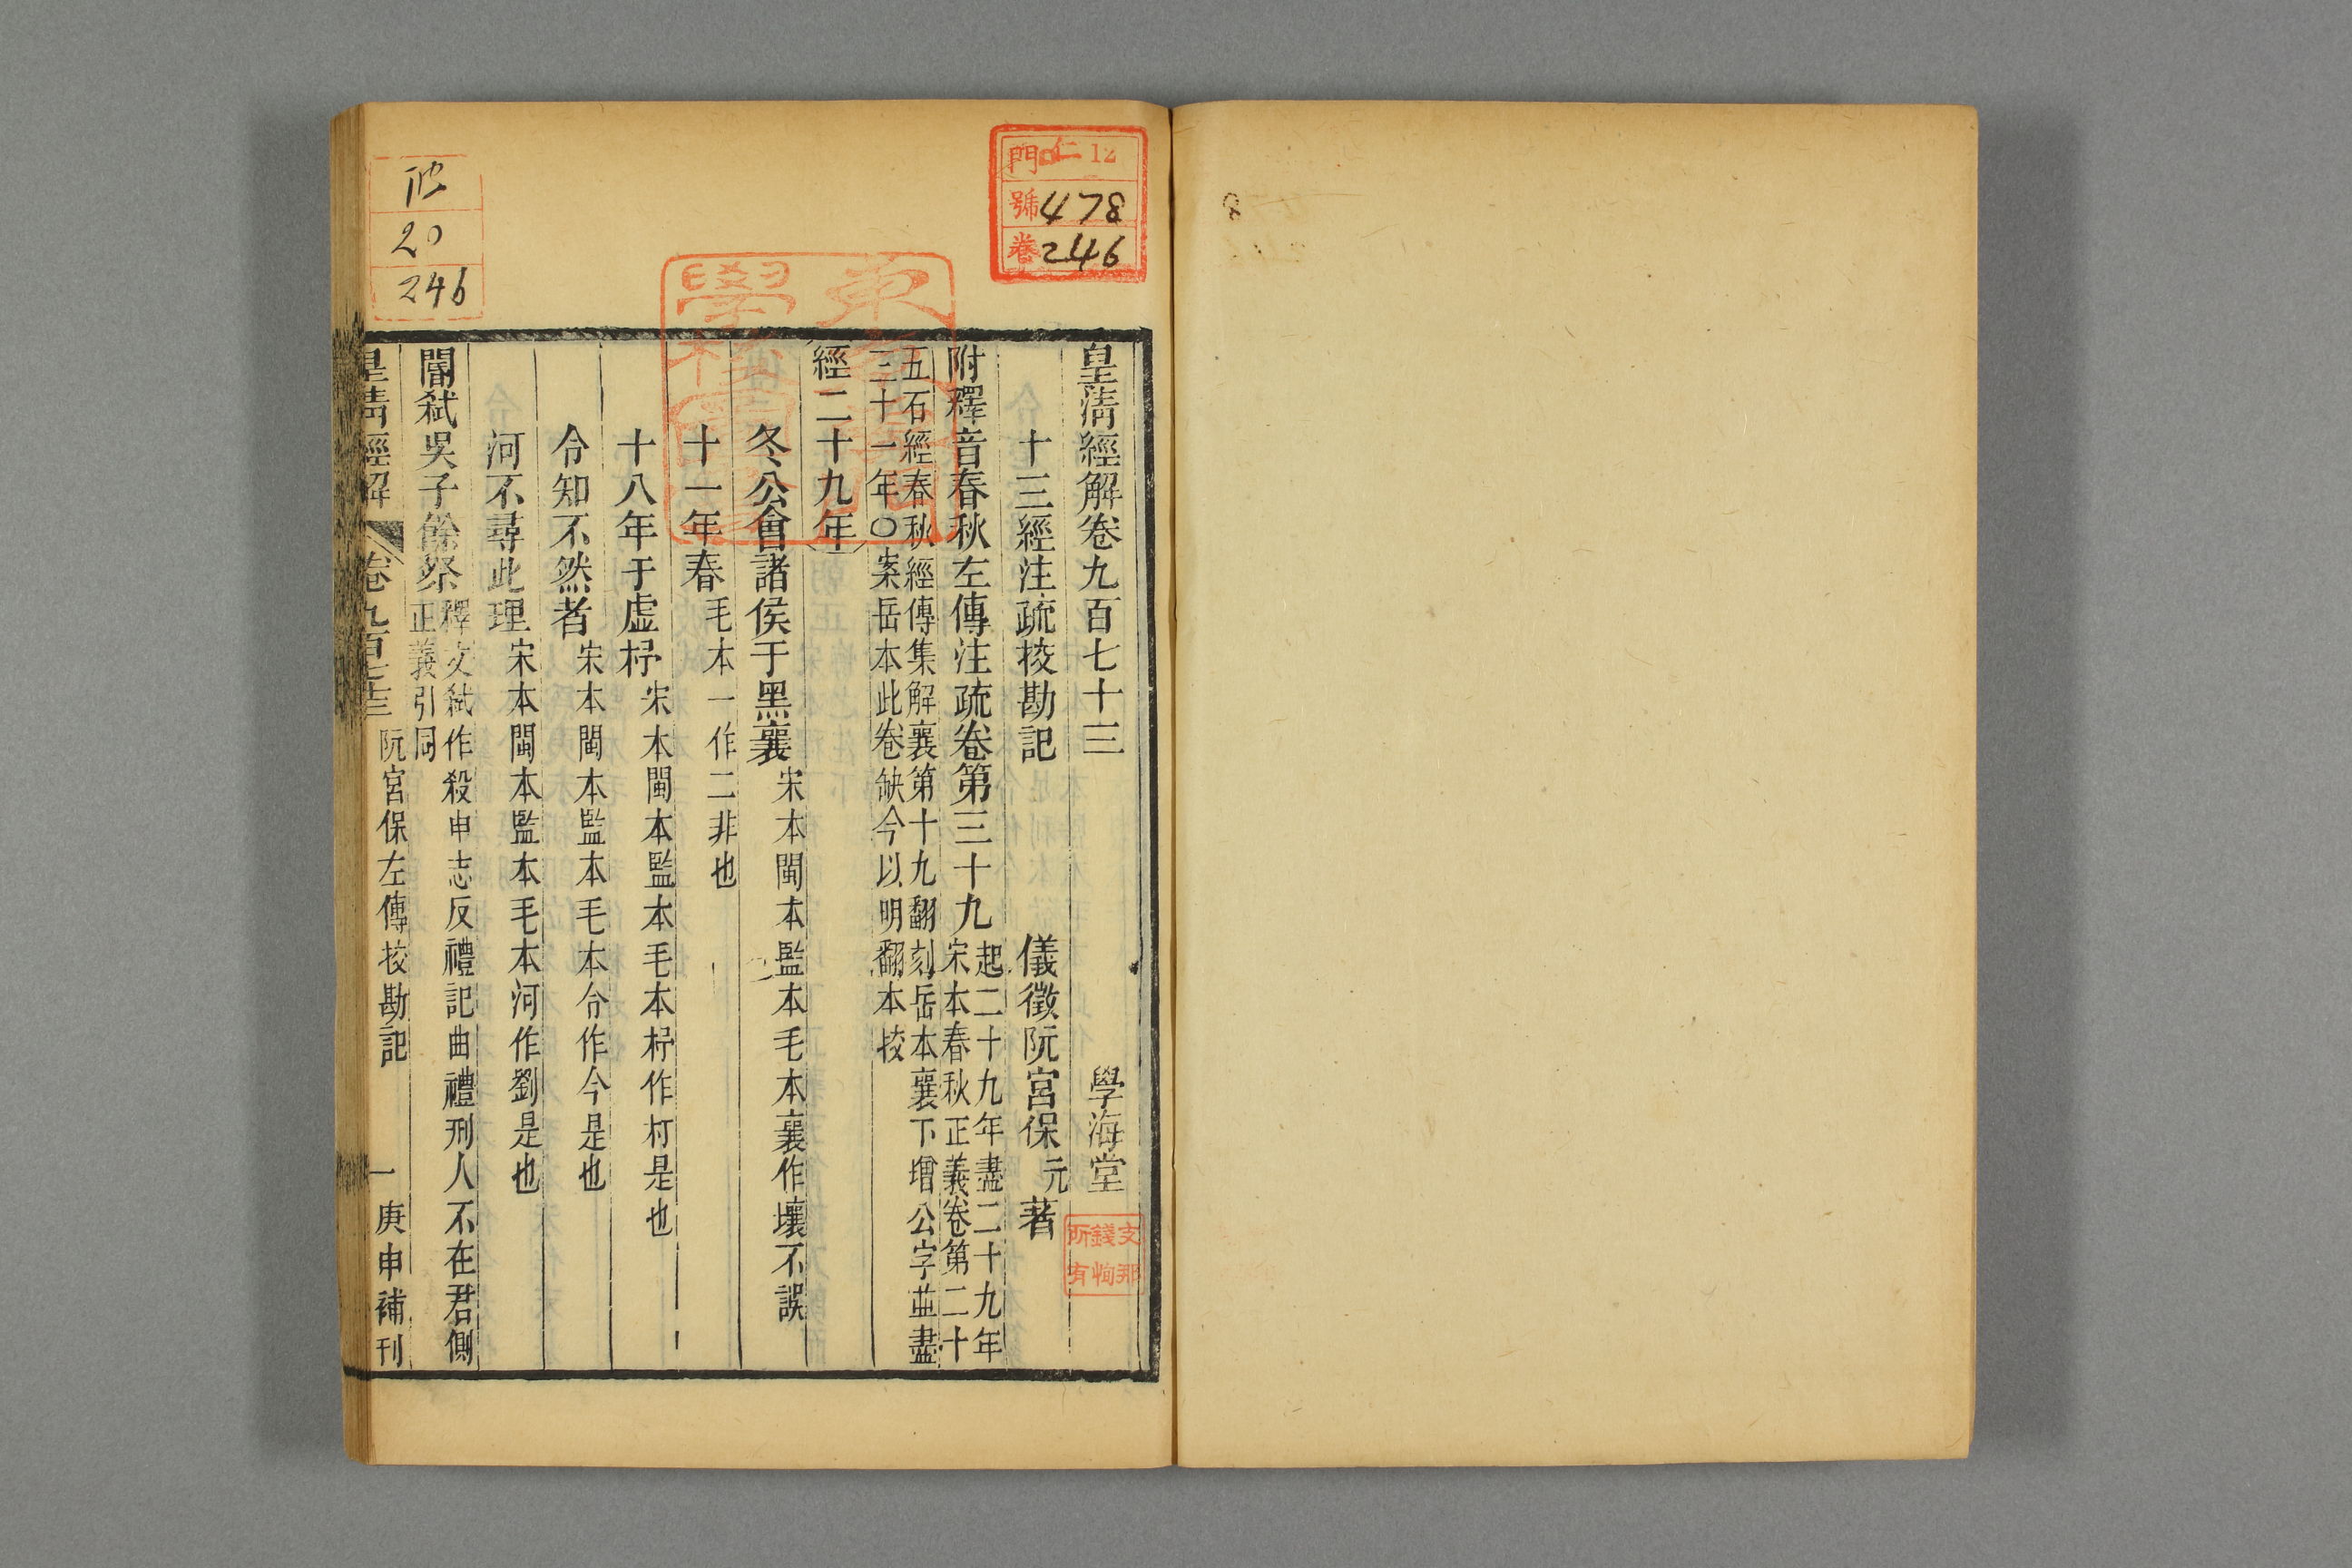 皇清經解卷九百七十三 學海堂
十三經注疏挍勘記 儀徵阮宮保元著
附釋音春秋左傳注疏卷第三十九 起二十九年盡二十九年
宋本春秋正義卷第二十
五石經春秋經傳集解襄第十九翻刻岳本襄下增公字並盡
三十一年〇案岳本此卷缺今以明翻本挍
經二十九年
冬公會諸侯于黑襄 宋本閩本監本毛本襄作壤不誤
十一年春 毛本一作二非也
十八年于虛杍 宋本閩本監本毛本杍作朾是也
令知不然者 宋本閩本監本毛本令作今是也
河不尋此理 宋本閩本監本毛本河作劉是也
閽弑吳子餘祭 釋文弑作殺申志反禮記曲禮刑人不在君側
正義引同
皇清經解 卷九百七十三 阮宮保左傳挍勘記 一 庚申補刊
門 仁 12
號 478
卷 246
20
246
支那
錢恂
所有
8